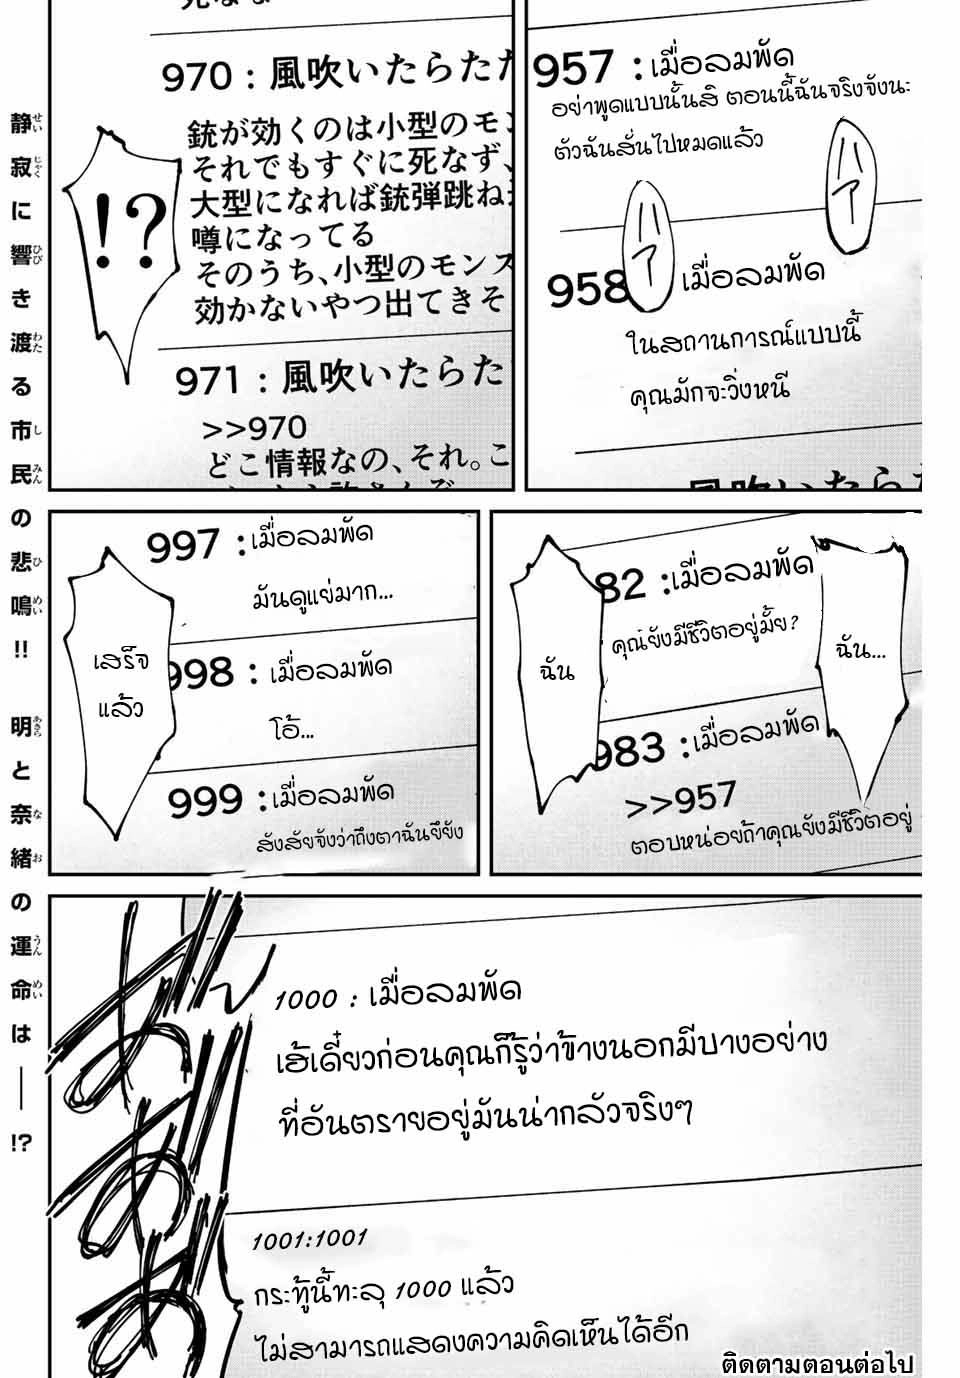 957 : เมื่อลมพัด
อย่าพูดแบบนั้นสิ ตอนนี้ฉันจริงจังนะ
ตัวฉันสั่นไปหมดแล้ว
ハァ
ハァ
958 เมื่อลมพัด
ในสถานการณ์แบบนี้
คุณมักจะวิ่งหนี
970 : 風吹いたらた
銃が効くのは小型のモン
それでもすぐに死なず、
大型になれば銃弾跳ね
噂になってる
そのうち、小型のモンス
効かないやつ出てきそ
!?
971 : 風吹いたらた
>>970
どこ情報なの、それ。こ
82 : เมื่อลมพัด
คุณยังมีชีวิตอยู่มั้ย?
ฉัน...
ฉัน
983 : เมื่อลมพัด
>>957
ตอบหน่อยถ้าคุณยังมีชีวิตอยู่
997 : เมื่อลมพัด
มันดูแย่มาก...
998 : เมื่อลมพัด
โอ้...
เสร็จ
แล้ว
999 : เมื่อลมพัด
สังสัยจังว่าถึงตาฉันยึยัง
1000 : เมื่อลมพัด
เฮ้เดี๋ยวก่อนคุณก็รู้ว่าข้างนอกมีบางอย่าง
ที่อันตรายอยู่มันน่ากลัวจริงๆ
1001:1001
กระทู้นี้ทะลุ 1000 แล้ว
ไม่สามารถแสดงความคิดเห็นได้อีก
静寂に響き渡る市民の悲鳴!! 明と奈緒の運命は――!?
ติดตามตอนต่อไป